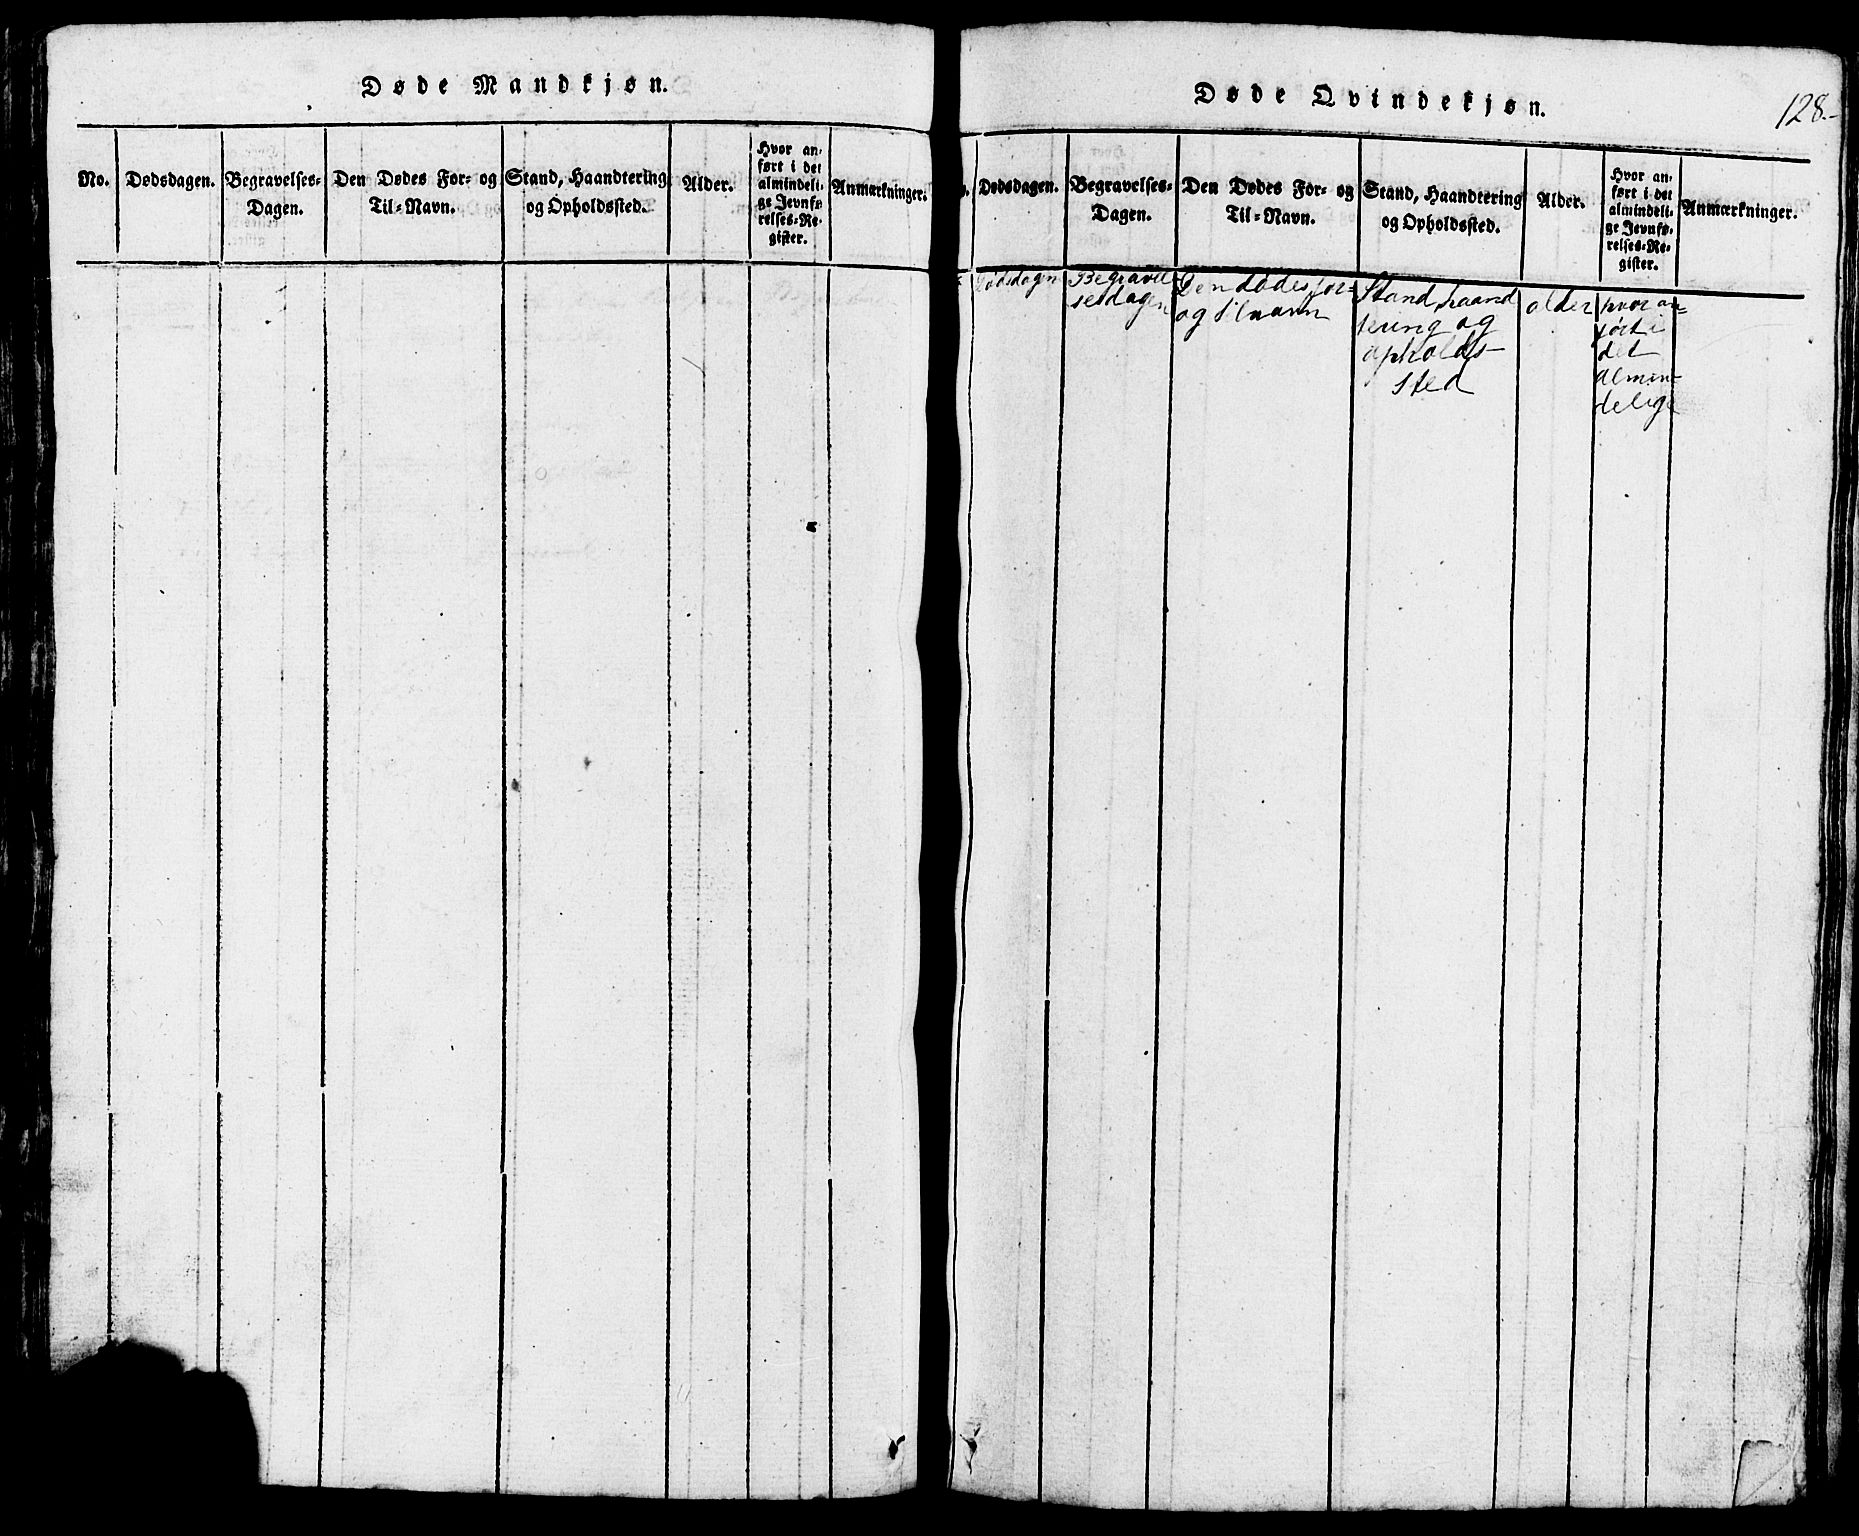 Døde Mandkjøn.
No.
Dødsdagen.
Begravelses-
Dagen.
Den Dødes For- og
Til-Navn.
Stand, Haandtering
og Opholdssted.
Alder.
Hvor an-
ført i det
almindeli-
ge Jevnfø-
relses-Re-
gister.
Anmærkninger.
Døde Qvindekjøn.
128.-
Dødsdagen.
Begravelses-
Dagen.
Den Dødes For- og
Til-Navn.
Stand, Haandtering
og Opholdssted.
Alder.
Hvor an-
ført i det
almindeli-
ge Jevnfø-
relses-Re-
gister.
Anmærkninger.
Dødsdagen
Begravel
sesdagen
Den dødes for-
og tilnavn
Stand, haand
tering og
opholds-
sted
alder
hvor an-
ført i
det
almin-
delige